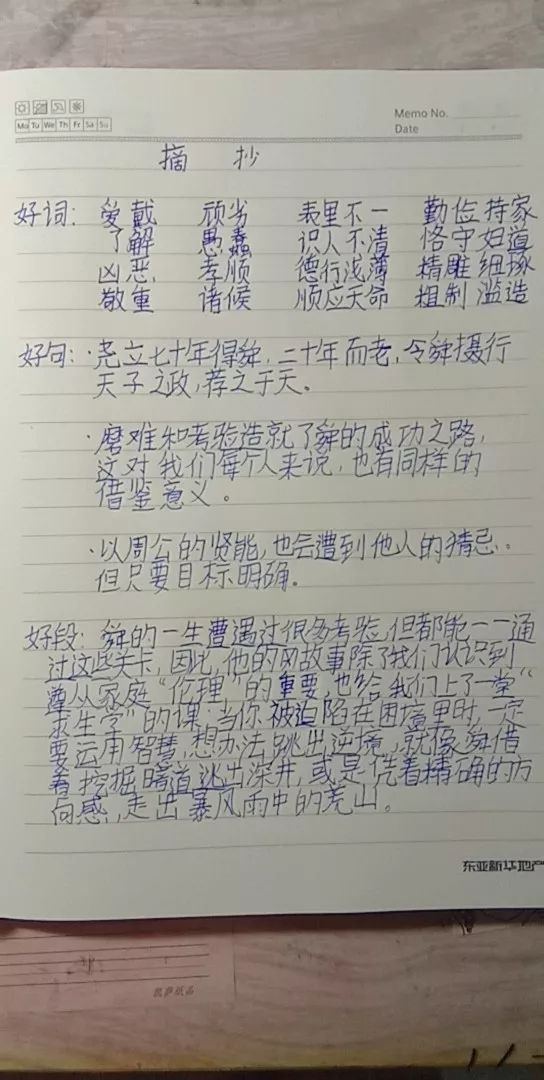 Memo No.
Mo Tu We Th Fr Sa Su
Date
摘 抄
好词: 爱戴 顽劣 表里不一 勤俭持家
了解 愚蠢 识人不清 恪守妇道
凶恶 孝顺 德行浅薄 精雕细琢
敬重 诸候 顺应天命 粗制滥造
好句: ·尧立七十年得舜,二十年而老,令舜摄行
天子之政,荐之于天。
·磨难和考验造就了舜的成功之路,
这对我们每个人来说,也有同样的
借鉴意义。
·以周公的贤能,也会遭到他人的猜忌。
但只要目标明确。
好段: 舜的一生遭遇过很多考验,但都能一一通
过这些关卡,因此,他的故事除了我们认识到
遵从家庭“伦理”的重要,也给我们上了一堂“
求生学”的课,当你被迫陷在困境里时,一定
要运用智慧,想办法跳出逆境,就像舜借
着挖掘暗道逃出深井,或是凭着精确的方
向感,走出暴风雨中的荒山。
东亚新华地产
凯萨纸品